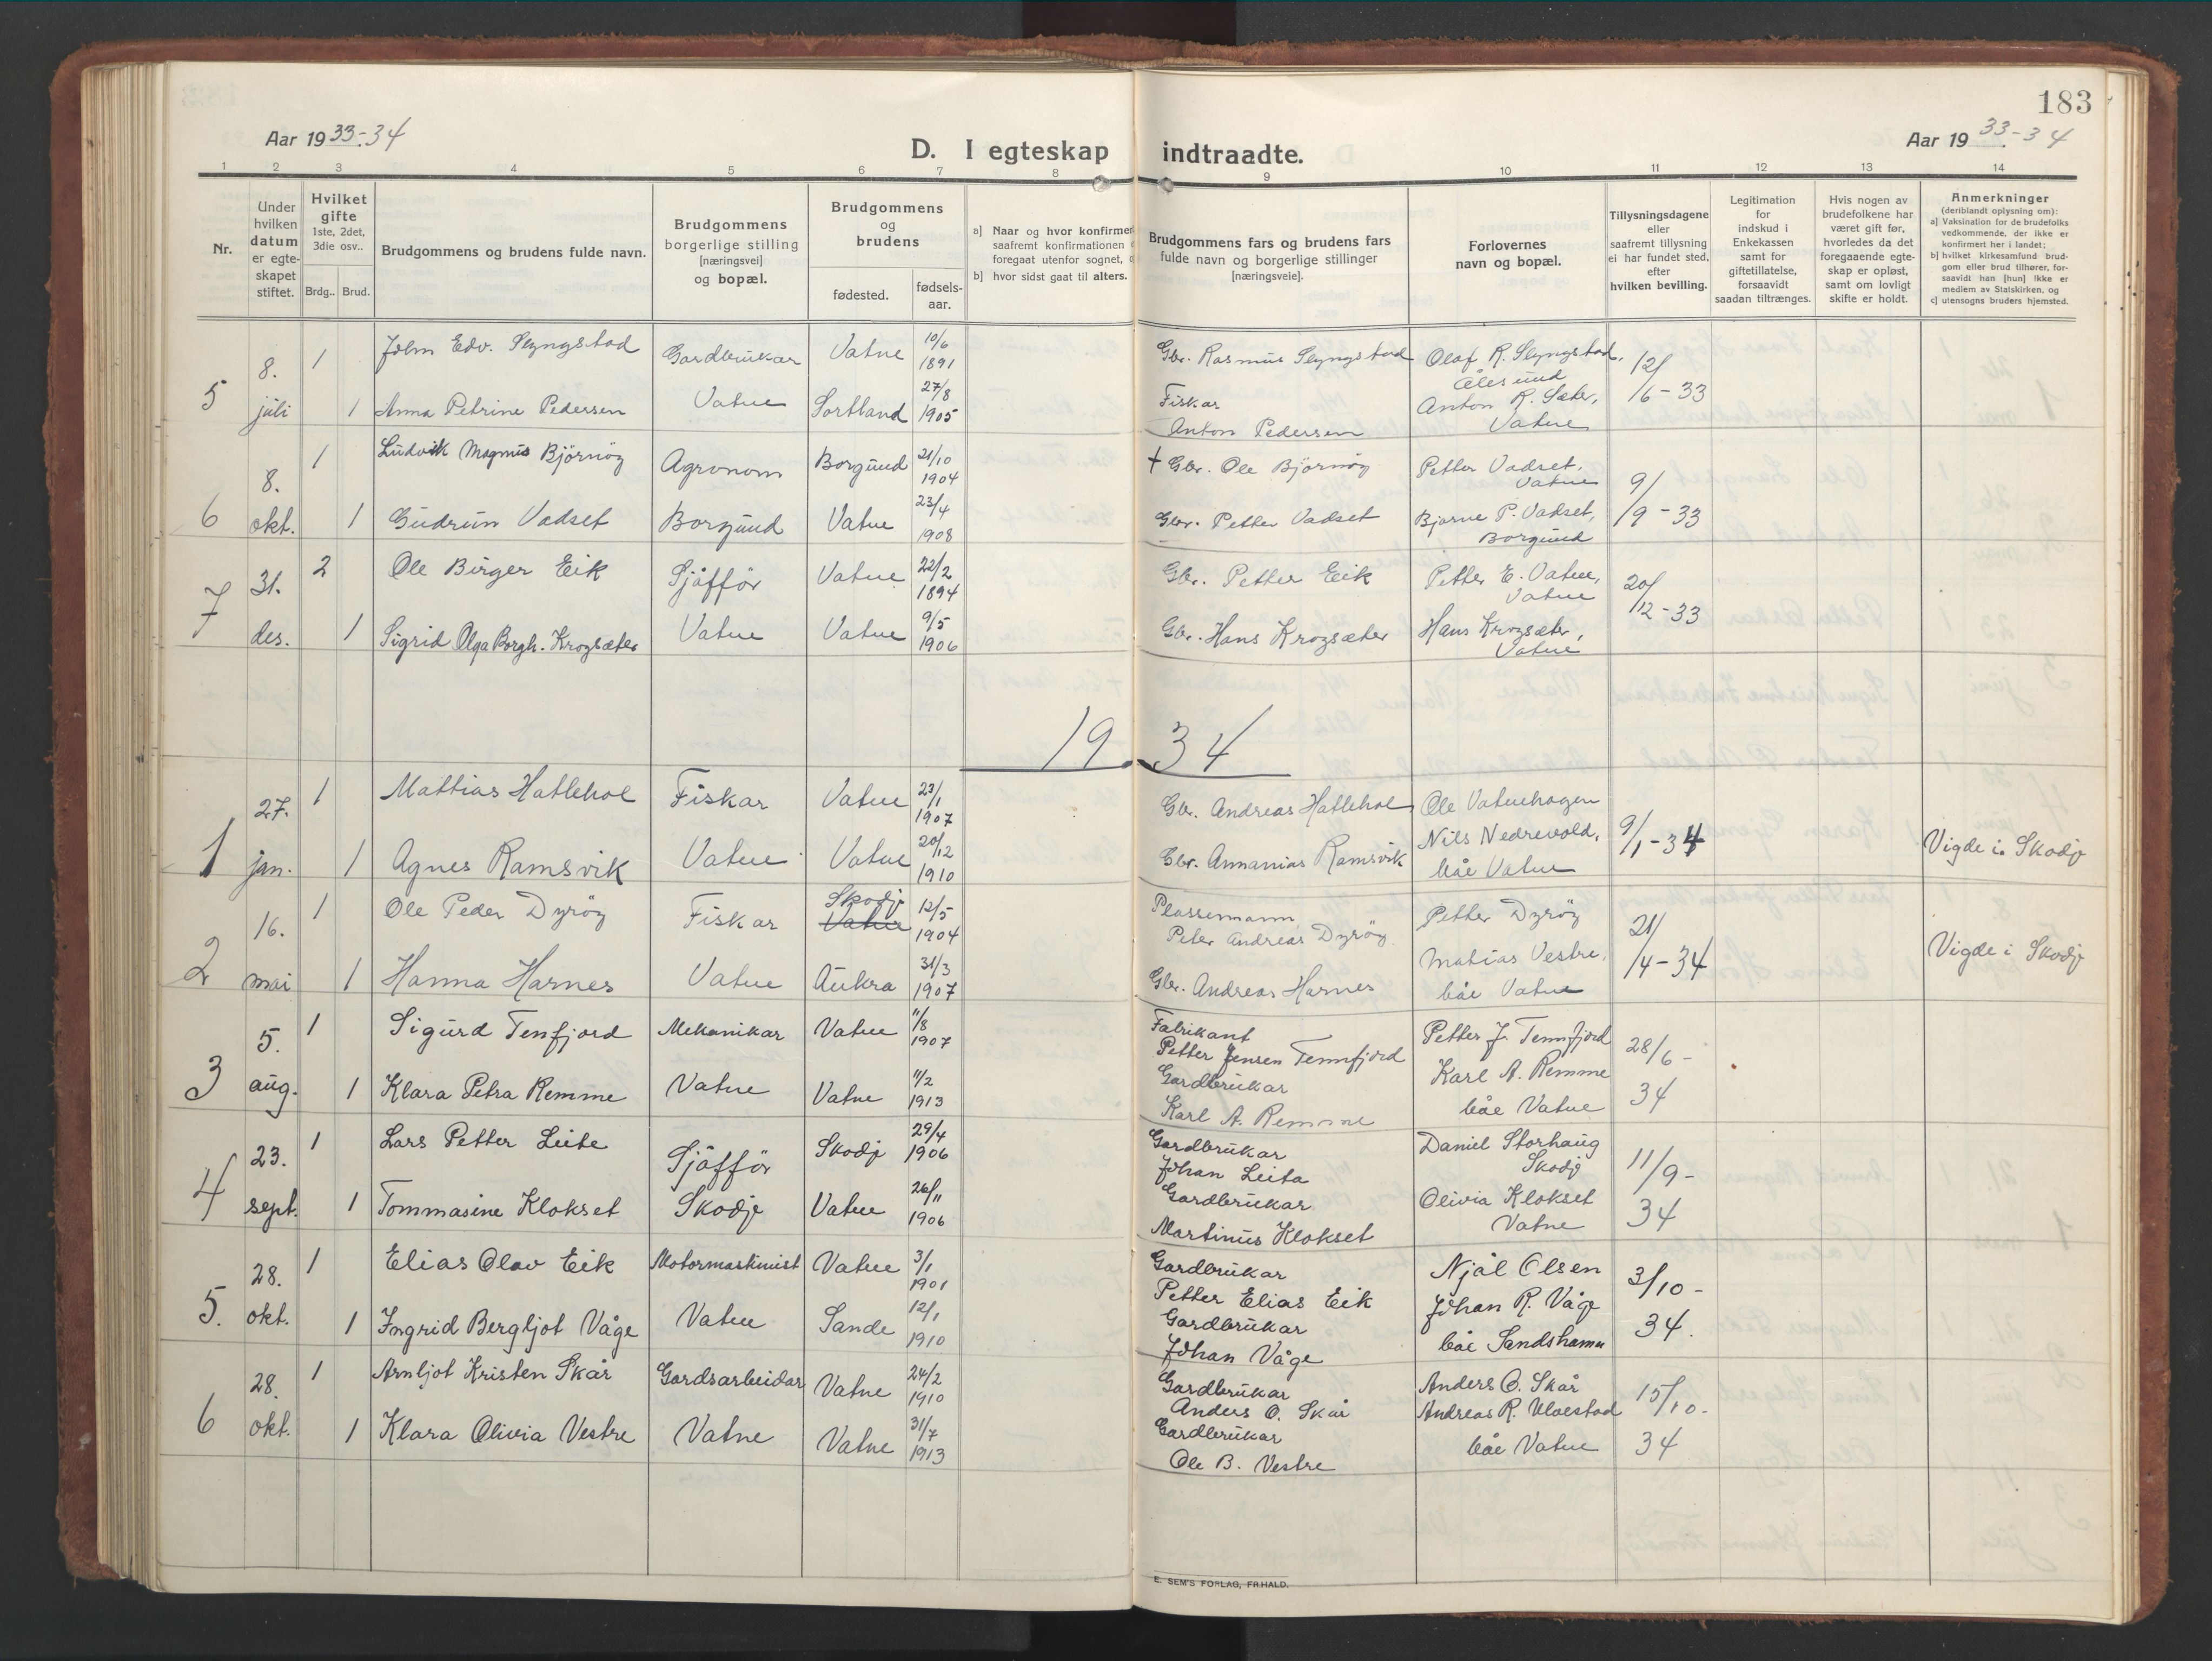 183
Aar 1933-34
D. I egteskap indtraadte.
Aar 1933-34
1 2 3 4 5 6 7 8 9 10 11 12 13 14
Nr.
Under hvilken datum er egte-skapet stiftet.
Hvilket gifte 1ste, 2det, 3die osv..
Brdg.. Brud.
Brudgommens og brudens fulde navn.
Brudgommens borgerlige stilling [næringsvei] og bopæl.
Brudgommens og brudens
fødested.
fødsels-aar.
a] Naar og hvor konfirmer
saafremt konfirmationen
foregaat utenfor sognet,
b] hvor sidst gaat til alters.
Brudgommens fars og brudens fars
fulde navn og borgerlige stillinger
[næringsveie].
Forlovernes
navn og bopæl.
Tillysningsdagene
eller
saafremt tillysning
ei har fundet sted,
efter
hvilken bevilling.
Legitimation
for
indskud i
Enkekassen
samt for
giftetillatelse,
forsaavidt
saadan tiltrænges.
Hvis nogen av
brudefolkene har
været gift før,
hvorledes da det
foregaaende egte-
skap er opløst,
samt om lovligt
skifte er holdt.
Anmerkninger
(deriblandt oplysning om):
a] Vaksination for de brudefolks
vedkommende, der ikke er
konfirmert her i landet;
b] hvilket kirkesamfund brud-
gom eller brud tilhører, for-
saavidt han [hun] ikke er
medlem av Statskirken, og
c] utensogns bruders hjemsted.
5 8. juli 1 John Edv. Slyngstad Gardbrukar Vatne 10/6 1891 Gbr. Rasmus Slyngstad Olaf R. Slyngstad, Ålesund 12/6-33
1 Anna Petrine Pedersen Vatne Sortland 27/8 1905 Fiskar Anton Pedersen Anton R. Sæter, Vatne
6 8. okt. 1 Ludvik Magnus Björnöy Agronom Borgund 21/10 1904 + Gbr. Ole Björnöy Petter Vadset, Vatne 9/9-33
1 Gudrun Vadset Borgund Vatne 23/4 1908 Gbr. Petter Vadset Bjarne P. Vadset, Borgund
7 31. des. 2 Ole Birger Eik Sjåfför Vatne 22/2 1894 Gbr. Petter Eik Petter E. Vatne, Vatne 20/12-33
1 Sigrid Olga Borgh. Krogsæter Vatne Vatne 9/5 1906 Gbr. Hans Krogsæter Hans Krogsæter, Vatne
1934
1 27. jan. 1 Mattias Hatlehol Fiskar Vatne 23/1 1907 Gbr. Andreas Hatlehol Ole Vatnehagen 9/1-34 Vigde i Skodje
1 Agnes Ramsvik Vatne Vatne 20/12 1910 Gbr. Annanias Ramsvik Nils Nedrevold, båe Vatne
2 16. mai 1 Ole Peder Dyröy Fiskar Skodje Vatne 12/5 1904 Plassemann Peter Andreas Dyröy Petter Dyröy 21/4-34 Vigde i Skodje
1 Hanna Harnes Vatne Aukra 31/3 1907 Gbr. Andreas Harnes Matias Vestre, båe Vatne
3 5. aug. 1 Sigurd Tenfjord Mekanikar Vatne 11/8 1907 Fabrikant Petter Jensen Tennfjord Petter J. Tennfjord 28/6-34
1 Klara Petra Remme Vatne Vatne 11/2 1913 Gardbrukar Karl A. Remme Karl A. Remme båe Vatne
4 23. sept. 1 Lars Petter Leite Sjåfför Skodje 29/4 1906 Gardbrukar Johan Leita Daniel Storhaug Skodje 11/9-34
1 Tommasine Klokset Skodje Vatne 26/11 1906 Gardbrukar Martinus Klokset Olivia Klokset Vatne
5. 28. okt. 1 Elias Olav Eik Motormaskinist Vatne 3/1 1901 Gardbrukar Petter Elias Eik Njål Olsen 3/10-34.
1 Ingrid Bergljot Våge Vatne Sande 12/1 1910 Gardbrukar Johan Våge Johan R. Våge båe Sandshamn
6 28. okt. 1 Arnljot Kristen Skår Gardsarbeidar Vatne 24/2 1910 Gardbrukar Anders O. Skår Anders O. Skår 15/10-34
1 Klara Olivia Vestre Vatne Vatne 31/7 1913 Gardbrukar Ole B. Vestre Andreas R. Ulvestad båe Vatne
E. SEM'S FORLAG, FR.HALD.